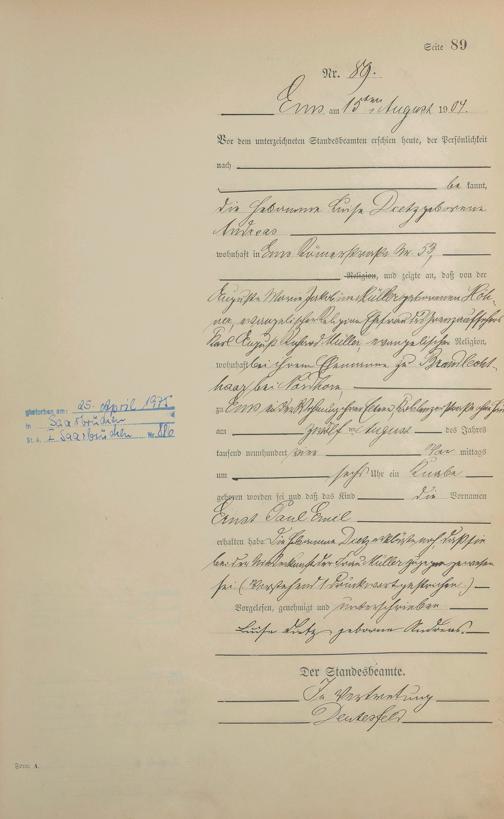 Seite 89
Nr. 89.
Ems am 15ten August 1904.
Vor dem unterzeichneten Standesbeamten erschien heute, der Persönlichkeit
nach
be kannt,
die Hebamme Luise Dietz geborene
Andreas
wohnhaft in Ems Römerstraße Nr. 59,
Religion, und zeigte an, daß von der
Auguste Marie Jakobine Müller geborenen
evangelischer Religion Ehefrau des
Karl August Müller, evangelischer Religion,
wohnhaft bei ihrem Ehemanne zu
bei
zu Ems in der Wohnung ihrer Eltern, Coblenzerstraße
am zwölften August des Jahres
tausend neunhundert vier Vor mittags
um sechs Uhr ein Knabe
geboren worden sei und daß das Kind die Vornamen
Ernst Paul Emil
erhalten habe. Die Hebamme Dietz erklärte noch, daß sie
bei der Niederkunft der Frau Müller zugegen gewesen
sei. (Vorstehend 1 Druckwort gestrichen.)
Vorgelesen, genehmigt und unterschrieben
Luise Dietz geborene Andreas.
Der Standesbeamte.
In Vertretung
gestorben am: 25. April 1975
in Saarbrücken
St. A. I Saarbrücken Nr.
Form A.